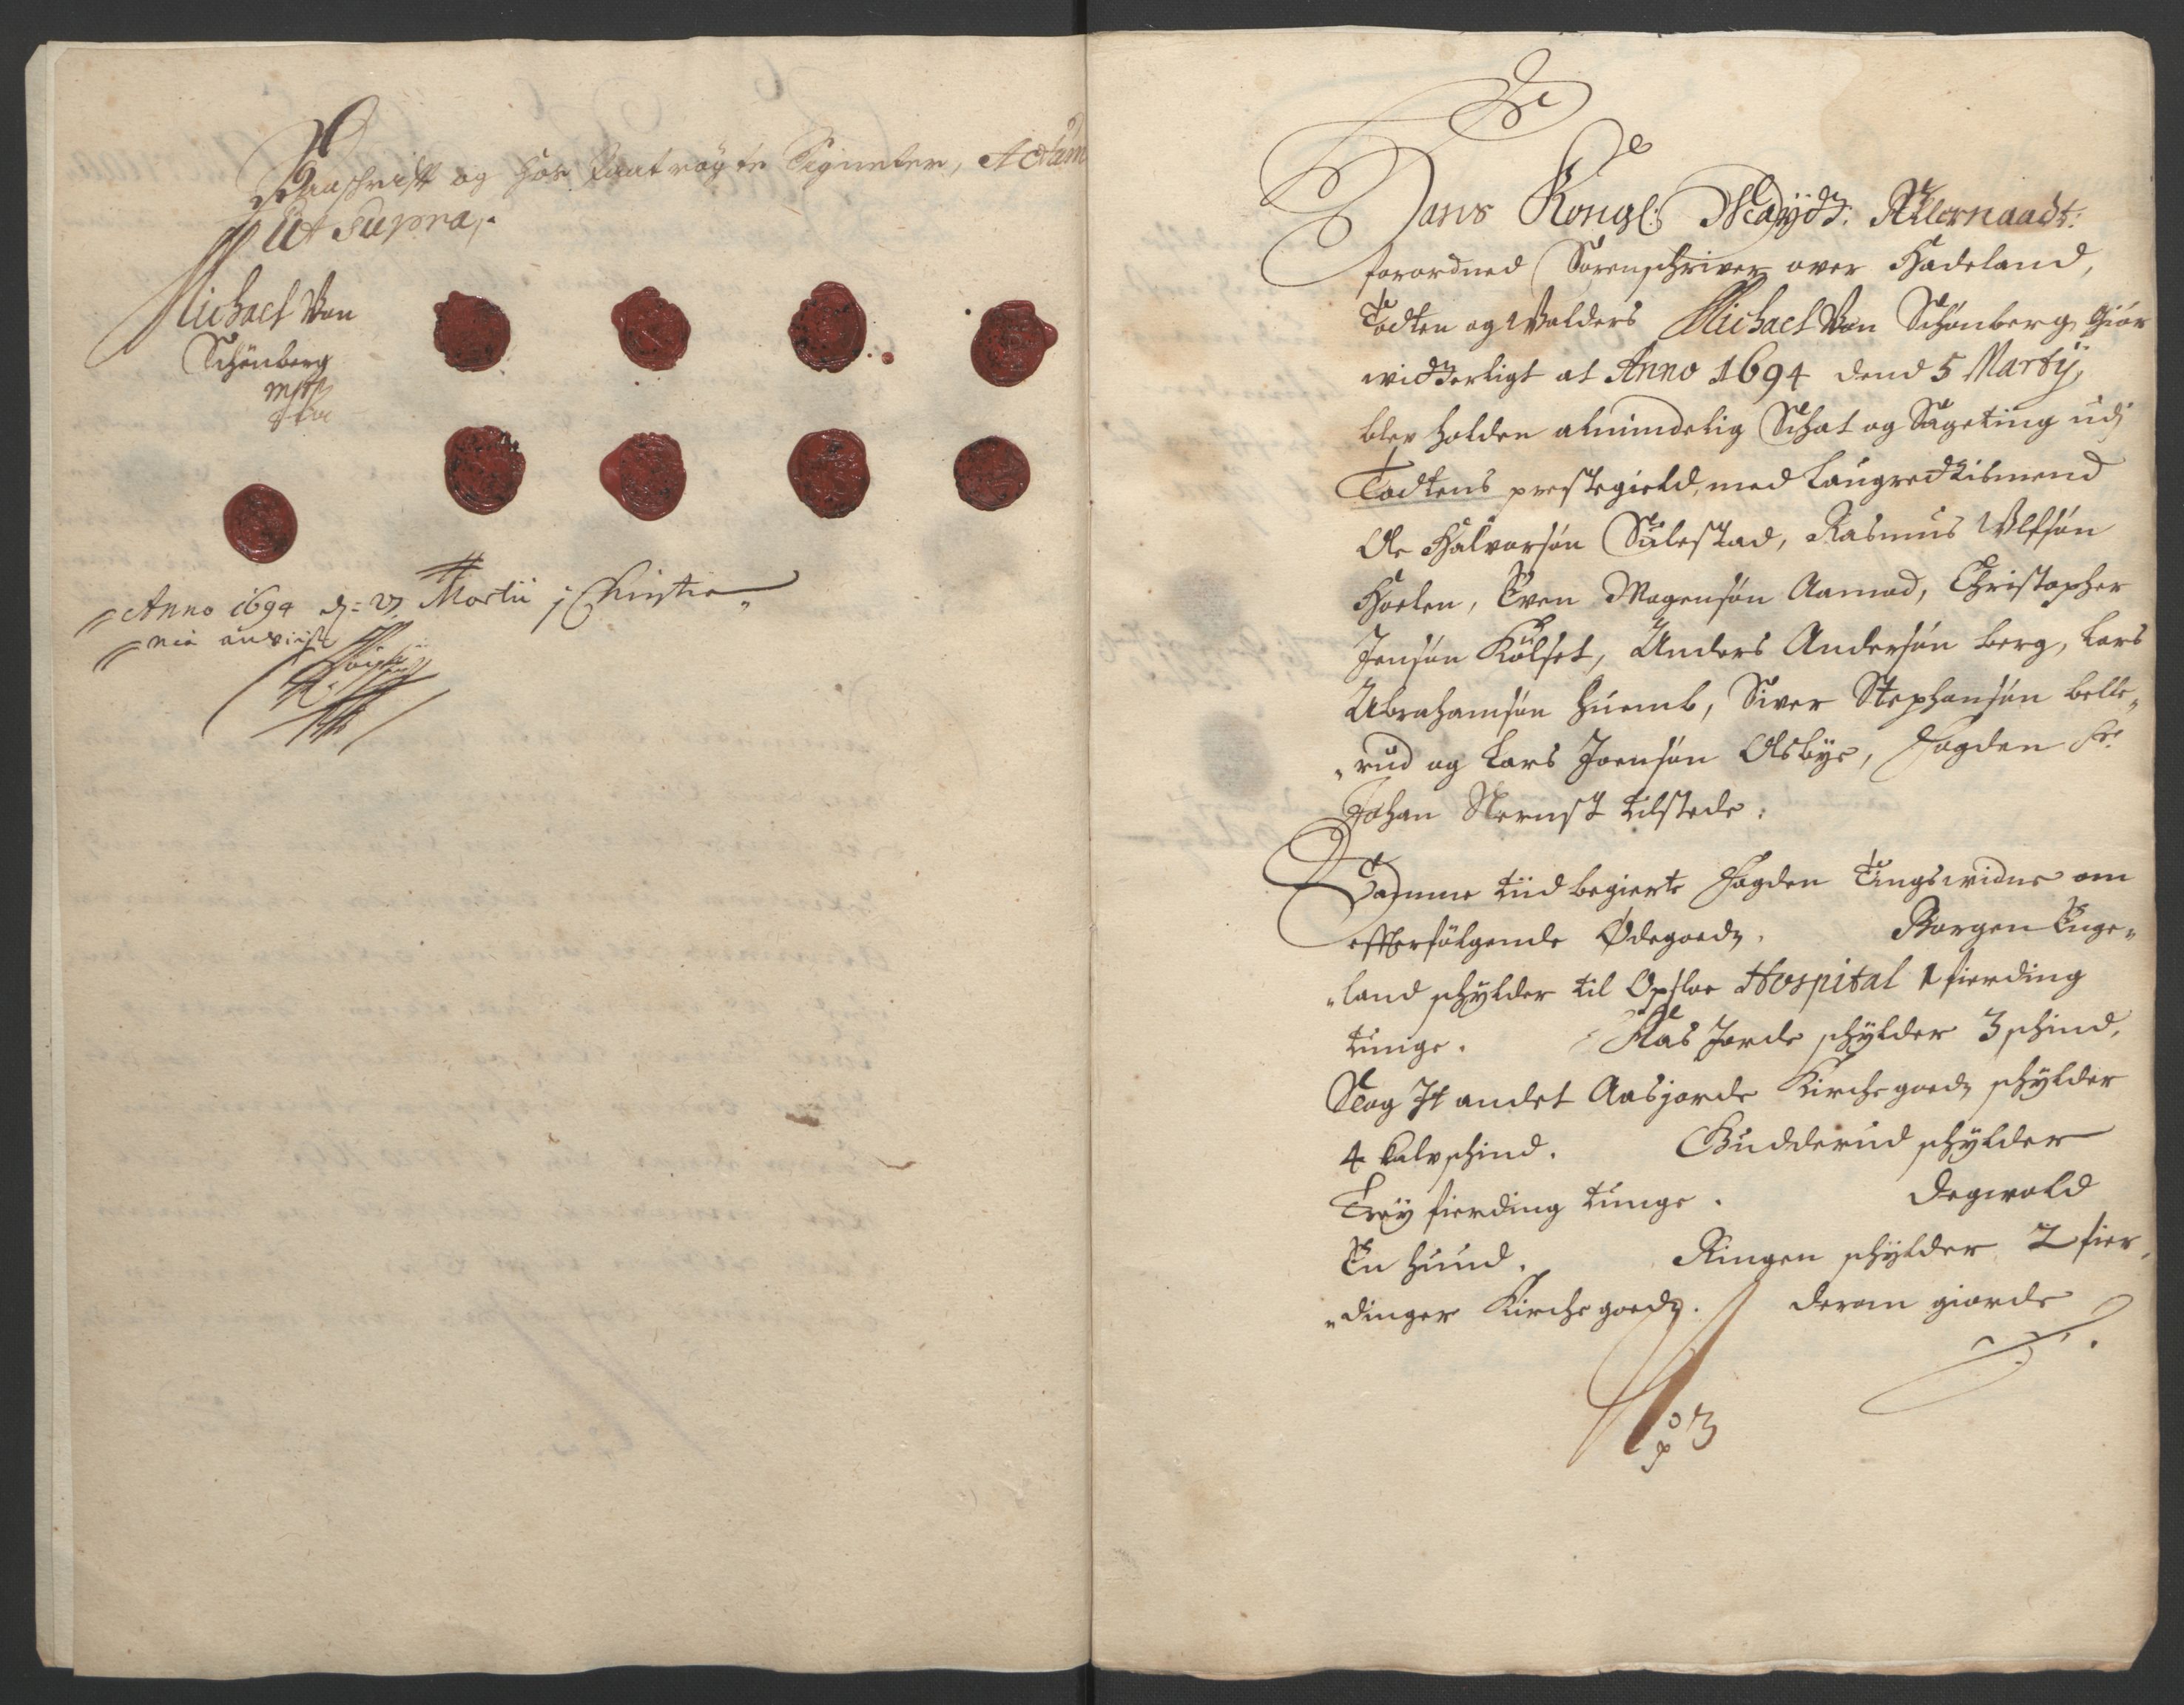 Haandschrifft og hos paatrögte Signeter, Actum
Ut supra,.
Michael Von
Schönberg
mpp
Anno 1694 d: 27 Martii j Christia„
„nia anviist
Hans Kongl: Mayds: Allernaadt:
forordned Sorenschriver over Hadeland,
Todten og Valders Michael Von Schönberg Giör
widterligt at Anno 1694 dend 5 Martij,
blev holden almindelig Schat og Sageting udj
Todtens prestegield, med Laugrettismend
Ole Halvorsön Sulestad, Rasmus Ulfsön
Hoelen, Even Mogensön Aamod, Christopher
Jensön Kölset, Anders Andersön Berg, Lars
Abrahamsön Huemb, Siver Stephansön Belle„
„rud og Lars Joensön Olsbye, Fogden Sr.
Johan Nernst tilstede:
Samme tiid begierte Fogden Tingswidne om
effterfölgende Ödegoedz. Borgen Enge„
„land schylder til Opsloe Hospital 1 fierding
tunge. Aas Jorde schylder 3 schind,
Nog It andet Aasjorde Kirche goedz schylder
4 kalvschind. Budderud schylder
Trey fierding tunge. Degwold
En huud. Ringen schylder 2 fier„
„dinger Kirche goedz. derom giorde
3